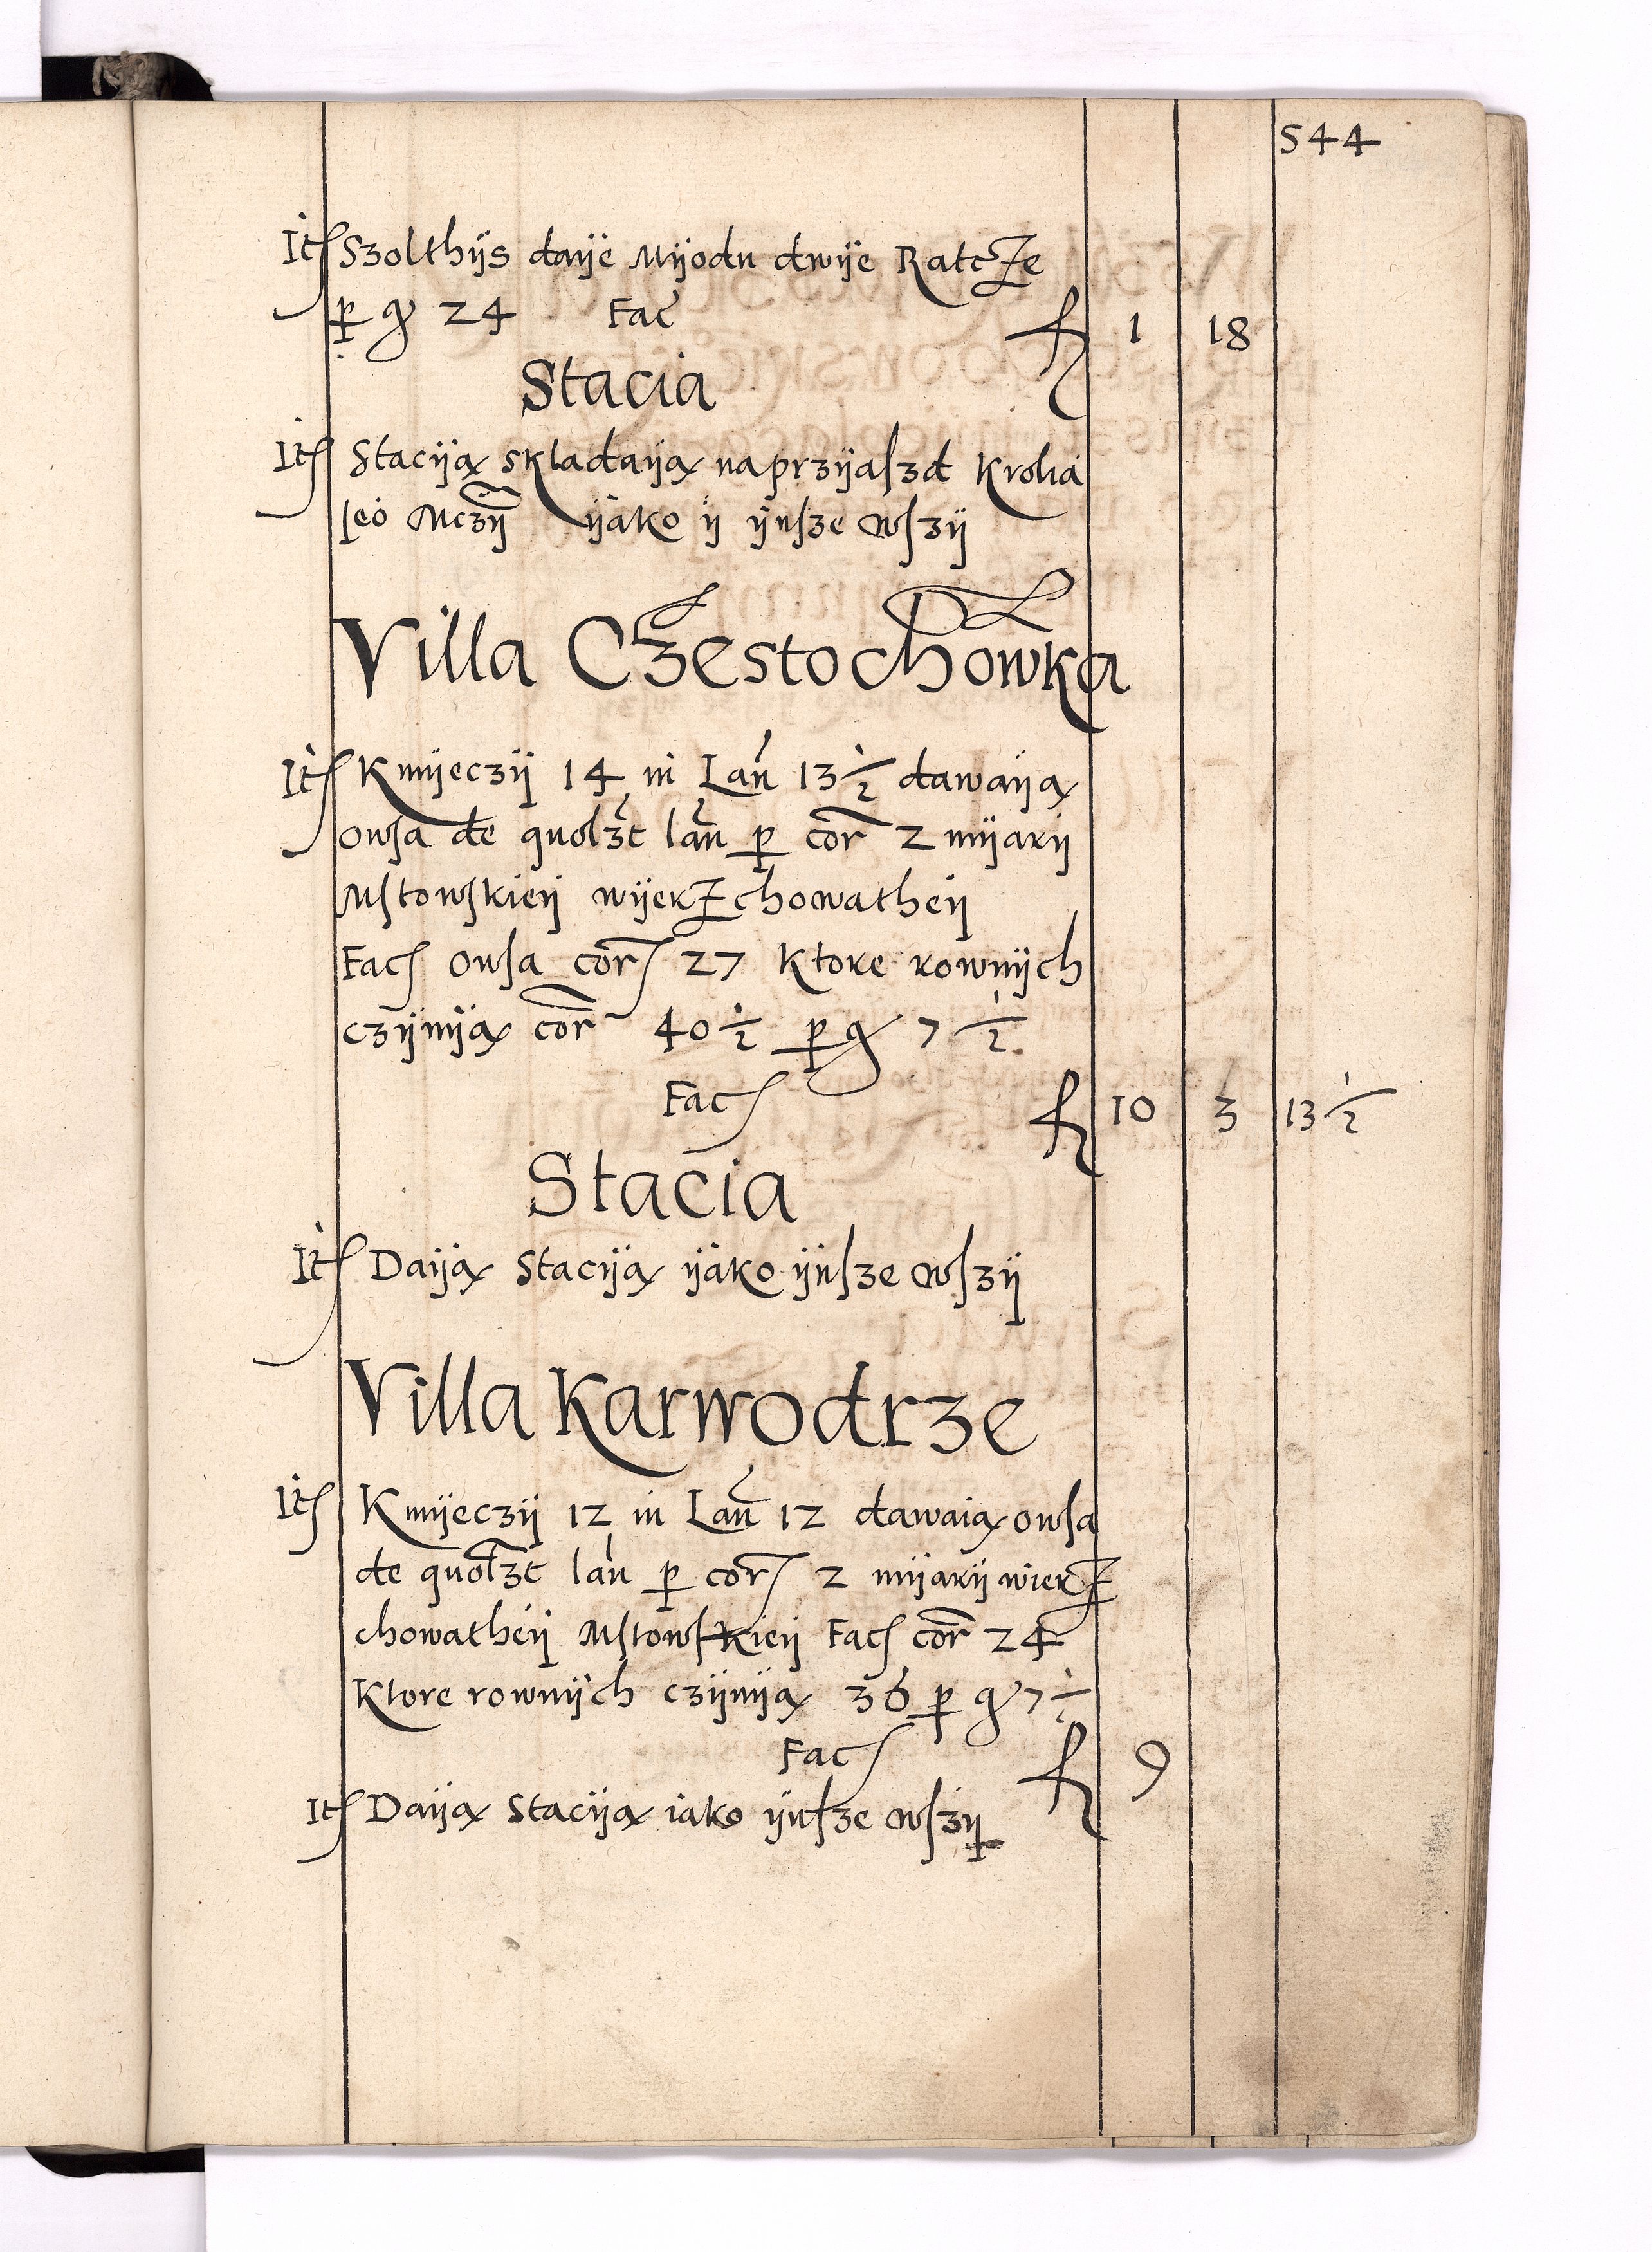 544
It Szolthÿs daÿe Mÿodu dwÿe Ratcże
p g 24 Fac f 1 18
Stacia
It Stacÿą składaÿą na przÿaſzd Krolia
Ieo Mczÿ ÿako ÿ ÿnſze wſzÿ
Villa Czestochowka
It Kmÿeczÿ 14 in Lan 13 1/2 dawaÿą
owſa de quolzt lan p cor 2 mÿarÿ
Mſtowſkieÿ wÿerżchowatheÿ
Fac owſa cor 27 Ktore rownÿch
czÿnÿą cor 40 1/2 p g 7 1/2
Fac f 10 3 13 1/2
Stacia
It Daÿą Stacÿą ÿako ÿnſze wſzÿ
Villa Karwodrze
It Kmÿeczÿ 12 in Lan 12 dawaią owſa
de quolzt lan p cor 2 mÿarÿ wierż
chowatheÿ Mſtowſkieÿ Fac cor 24
Ktore rownÿch czÿnÿą 36 p g 7 1/2
Fac f 9
It Daÿą Stacÿą iako ÿnſze wſzÿ